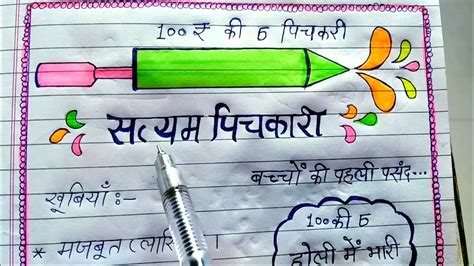 100 ₹ की 5 पिचकरी
सत्यम पिचकारी
बच्चों की पहली पसंद...
खूबियाँ :-
100 की 5
* मजबूत
होली में भारी